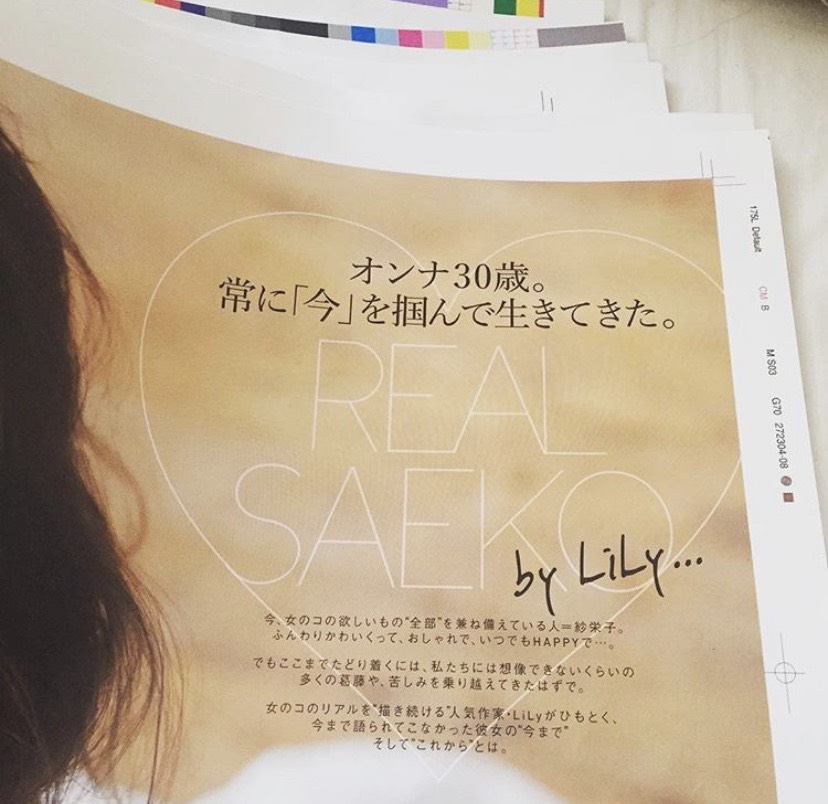 オンナ30歳。
常に「今」を掴んで生きてきた。
REAL
SAEKO
by LiLy...
今、女のコの欲しいもの"全部"を兼ね備えている人=紗栄子。
ふんわりかわいくって、おしゃれで、いつでもHAPPYで…。
でもここまでたどり着くには、私たちには想像できないくらいの
多くの葛藤や、苦しみを乗り越えてきたはずで。
女のコのリアルを"描き続ける"人気作家・LiLyがひもとく、
今まで語られてこなかった彼女の"今まで"
そして"これから"とは。
175L Default
CM B
M S03
G70 272304-08